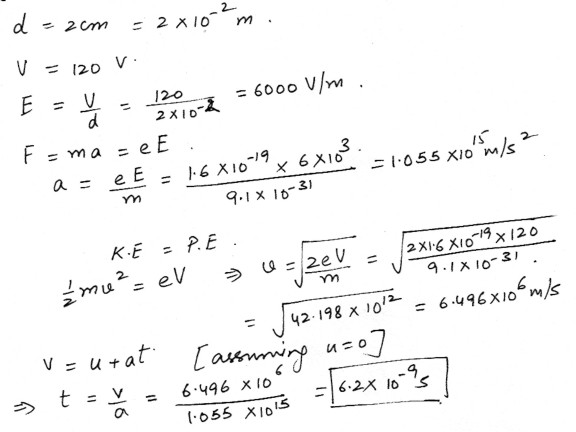 d = 2cm = 2 × 10⁻² m .
V = 120 V .
E = V/d = 120 / 2×10⁻² = 6000 V/m .
F = ma = eE .
a = eE/m = 1.6 ×10⁻¹⁹ × 6 ×10³ / 9.1 × 10⁻³¹ = 1.055 ×10¹⁵ m/s²
K.E = P.E .
½mv² = eV ⇒ v = √(2eV/m) = √(2×1.6 ×10⁻¹⁹ ×120 / 9.1 × 10⁻³¹) .
= √(42.198 × 10¹²) = 6.496×10⁶ m/s
v = u + at [assuming u=0]
⇒ t = v/a = 6.496 ×10⁶ / 1.055 ×10¹⁵ = 6.2× 10⁻⁹ s